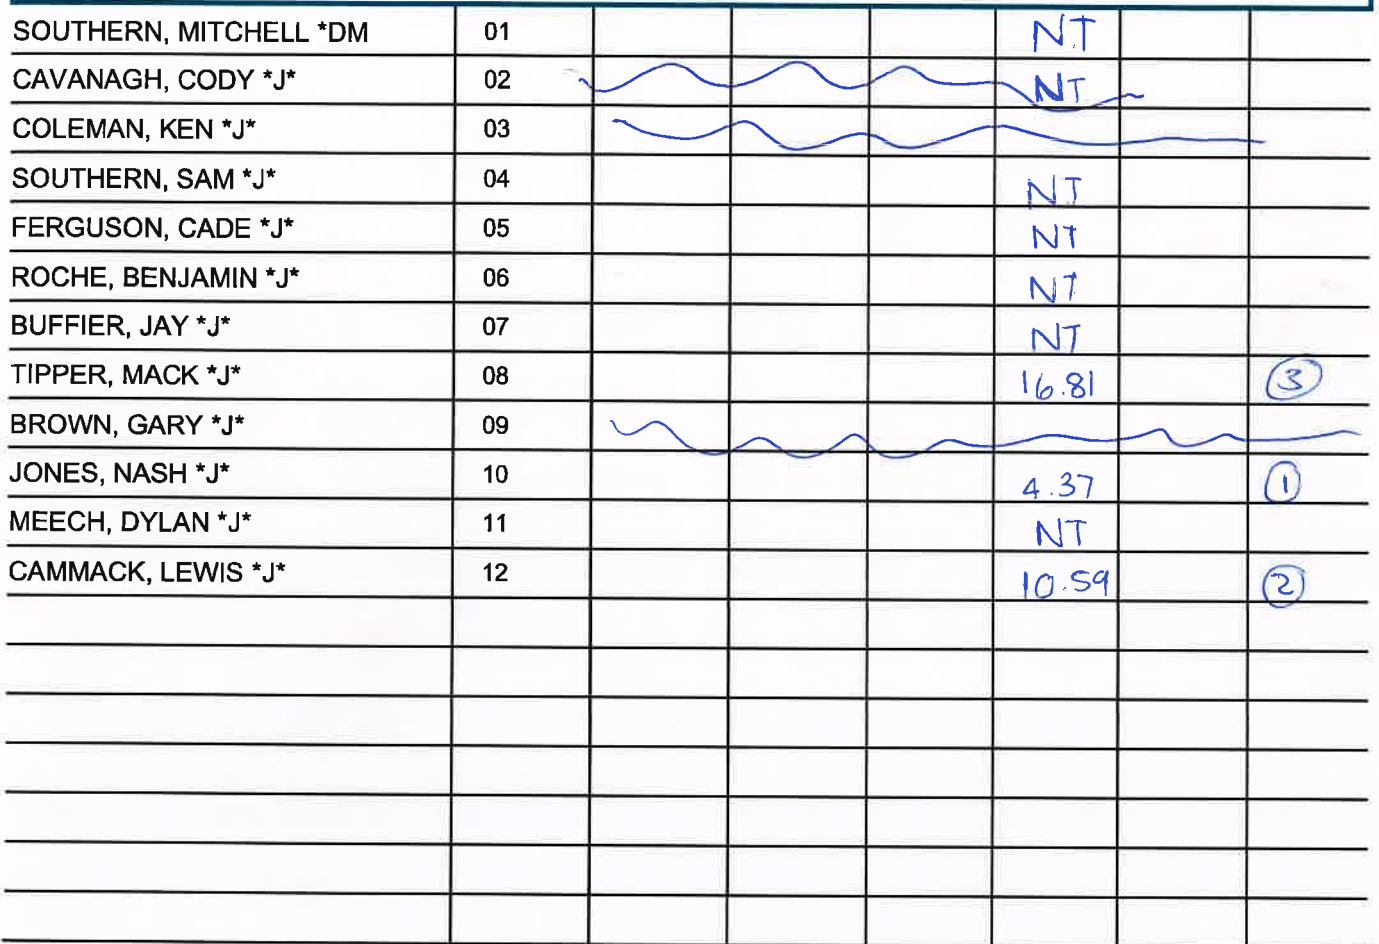 SOUTHERN, MITCHELL *DM 01 NT
CAVANAGH, CODY *J* 02 NT
COLEMAN, KEN *J* 03
SOUTHERN, SAM *J* 04 NT
FERGUSON, CADE *J* 05 NT
ROCHE, BENJAMIN *J* 06 NT
BUFFIER, JAY *J* 07 NT
TIPPER, MACK *J* 08 16.81 3
BROWN, GARY *J* 09
JONES, NASH *J* 10 4.37 1
MEECH, DYLAN *J* 11 NT
CAMMACK, LEWIS *J* 12 10.59 2